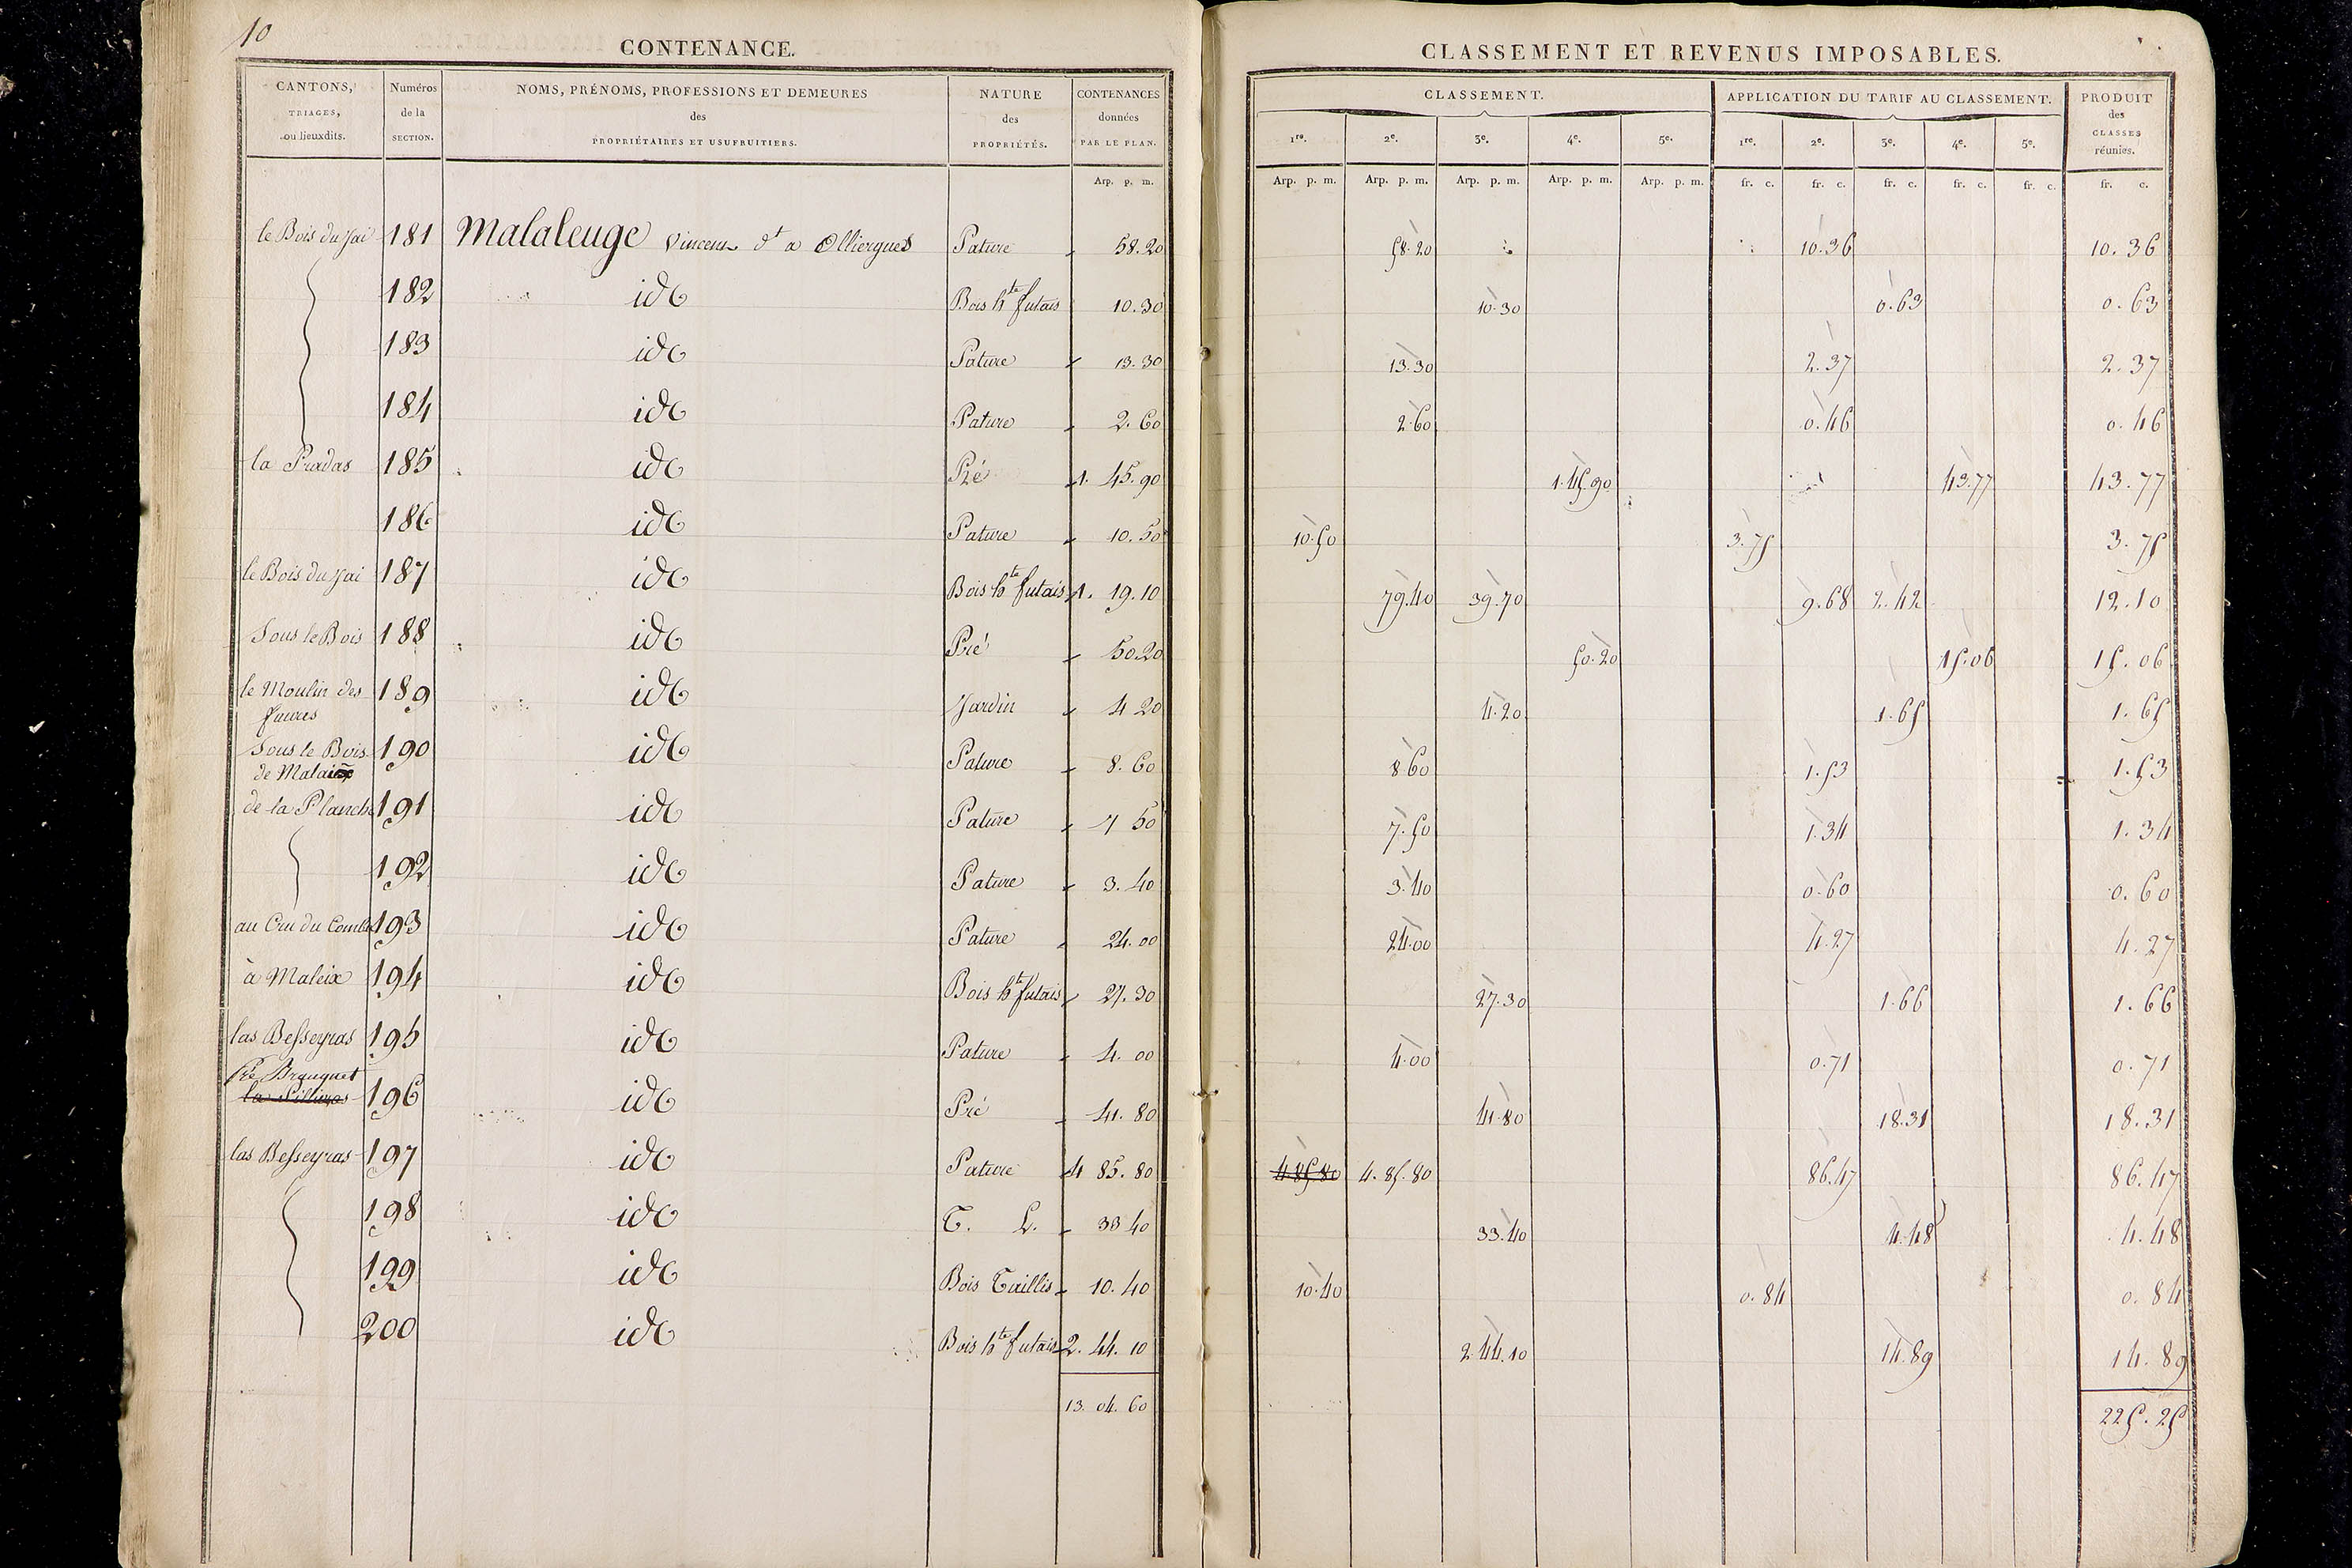 10
CONTENANCE.
CANTONS, TRIAGES, ou lieuxdits. | Numéros de la SECTION. | NOMS, PRÉNOMS, PROFESSIONS ET DEMEURES des PROPRIÉTAIRES ET USUFRUITIERS. | NATURE des PROPRIÉTÉS. | CONTENANCES données PAR LE PLAN.
Arp. p. m.
CLASSEMENT ET REVENUS IMPOSABLES.
CLASSEMENT. | APPLICATION DU TARIF AU CLASSEMENT. | PRODUIT des CLASSES réunies.
1re. 2e. 3e. 4e. 5e. 1re. 2e. 3e. 4e. 5e.
Arp. p. m. Arp. p. m. Arp. p. m. Arp. p. m. Arp. p. m. fr. c. fr. c. fr. c. fr. c. fr. c. fr. c.
le Bois du Jai 181 Malaleuge Vincent dt a Olliergues Pature 58.20 58.20 10.36 10.36
182 id Bois hte futais 10.30 10.30 0.63 0.63
183 id Pature 13.30 13.30 2.37 2.37
184 id Pature 2.60 2.60 0.46 0.46
la Pradas 185 id Pré 1. 45.90 1.45.90 43.77 43.77
186 id Pature 10.50 10.50 3.75 3.75
le Bois du Jai 187 id Bois hte futais 1. 19.10 79.40 39.70 9.68 2.42 12.10
Sous le Bois 188 id Pré 50.20 50.20 15.06 15.06
le Moulin des faures 189 id Jardin 4 20 4.20 1.65 1.65
Sous le Bois de Malaix 190 id Pature 8.60 8.60 1.53 1.53
de la Planche 191 id Pature 7 50 7.50 1.34 1.34
192 id Pature 3.40 3.40 0.60 0.60
au Cru du Combe 193 id Pature 24.00 24.00 4.27 4.27
à Maleix 194 id Bois hte futais 27.30 27.30 1.66 1.66
las Besseyras 195 id Pature 4.00 4.00 0.71 0.71
Pré Brauguet
196 id Pré 41.80 41.80 18.31 18.31
las Besseyras 197 id Pature 4 85.80 4.85.80 4.85.80 86.47 86.47
198 id T. L. 33 40 33.40 4.48 4.48
199 id Bois Taillis 10.40 10.40 0.84 0.84
200 id Bois hte futais 2. 44. 10 2.44.10 14.89 14.89
13. 04. 60 225.25